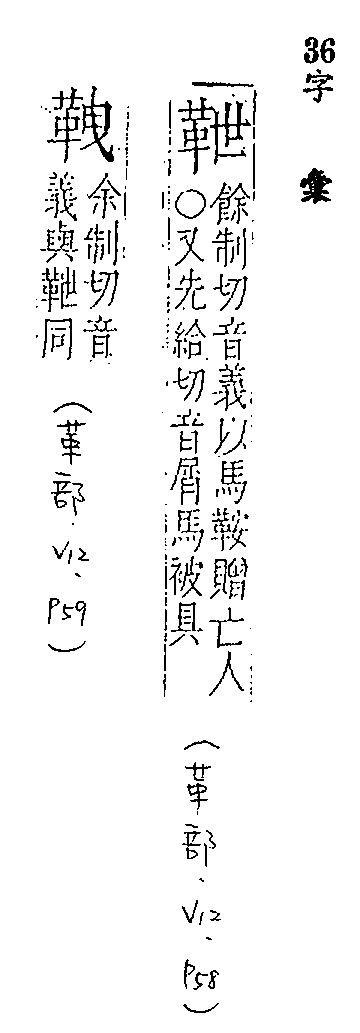 36字彙
靾 餘制切音義以馬鞍贈亡人
○又先結切音屑馬被具
(革部.V12.P58)
𩋏 余制切音
義與靾同
(革部.V12.P59)